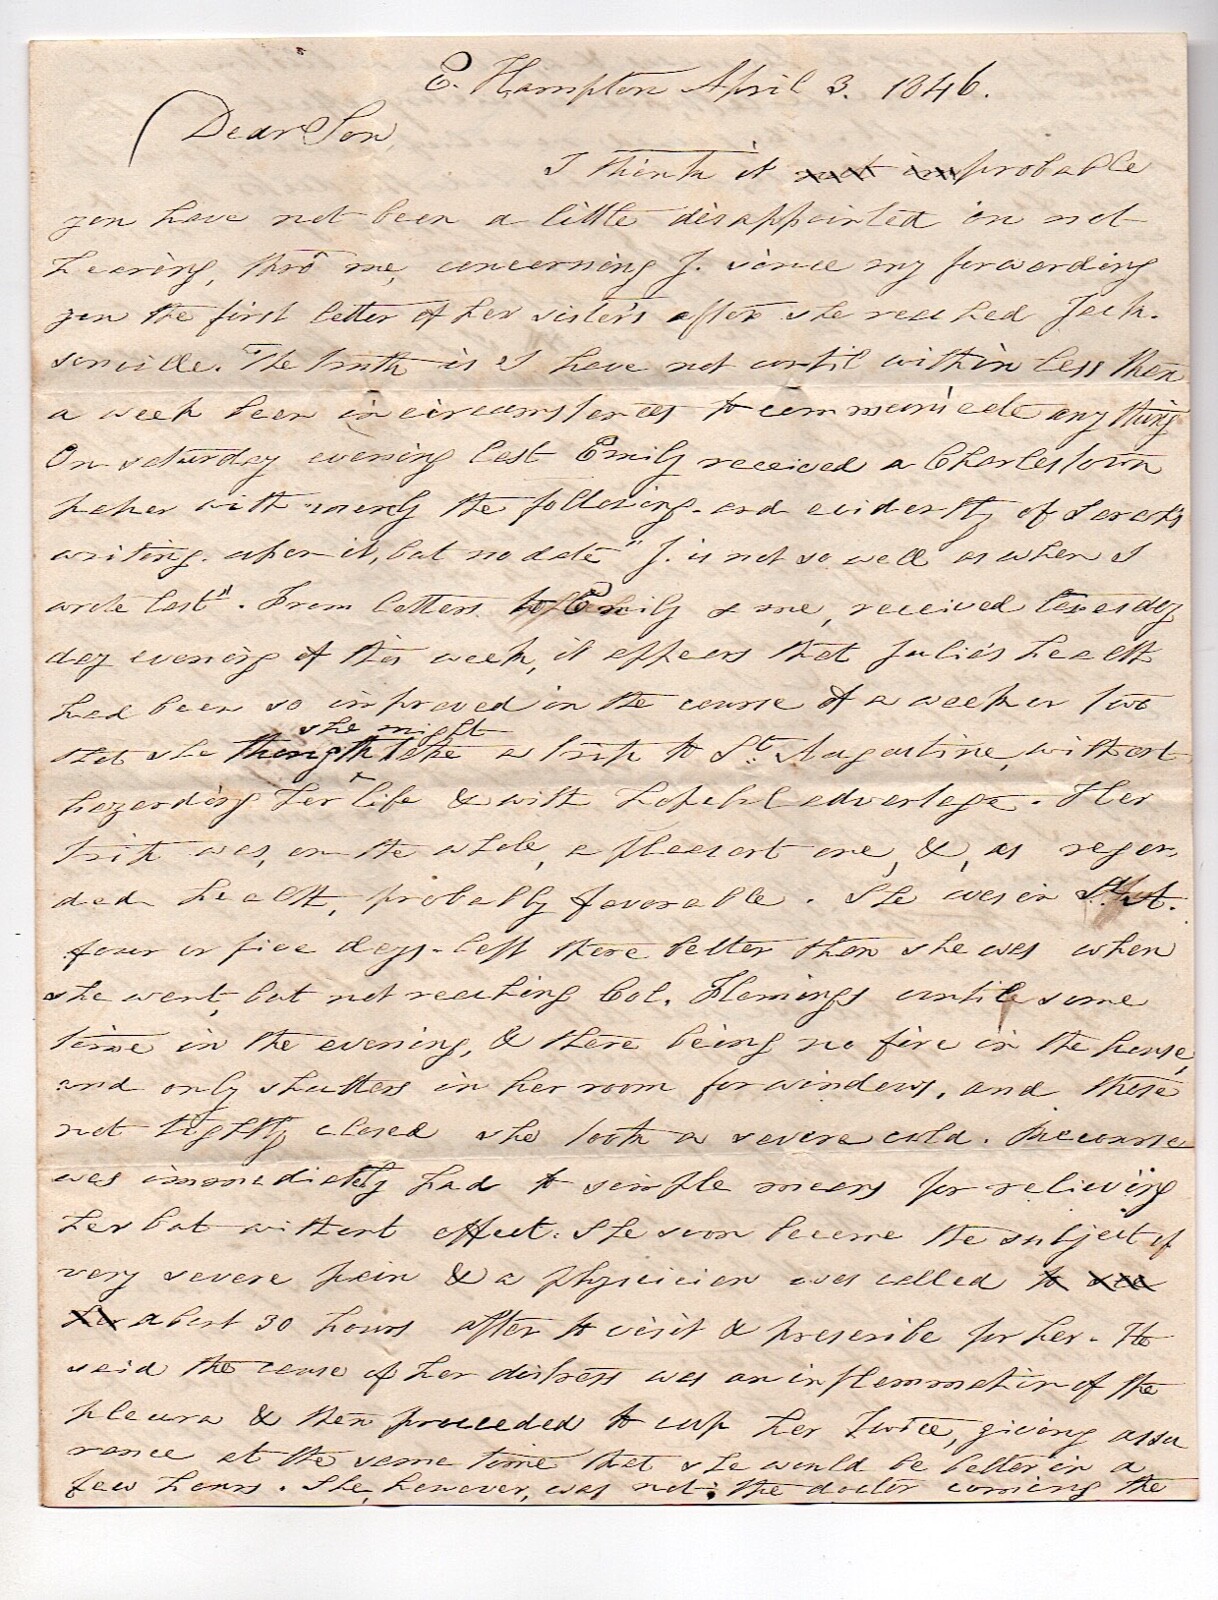 E. Hampton April 3. 1846.
Dear Son,
I think it not improbable
you have not been a little disappointed in not
hearing, thro' me, concerning J. since my forwarding
you the first letter of her sister's after she reached Jack-
sonville. The truth is I have not until within less than
a week been in circumstances to communicate any thing
On saturday evening last Emily received a Charlestown
paper with merely the following - and evidently of Sarah's
writing upon it, but no date "J. is not so well as when I
wrote last". From letters to Emily & me, received tuesday
day evening of this week, it appears that Julia's health
had been so improved in the course of a week or two
she might
that she thought take a trip to St. Augustine, without
hazarding her life & with hopeful advantage. Her
trip was, on the whole, a pleasant one, &, as regar-
ded health, probably favorable. She was in St. A.
four or five days - left there better than she was when
she went, but not reaching Col. Flemings until some
time in the evening, & there being no fire in the house,
and only shutters in her room for windows, and these
not tightly closed she took a severe cold. Recourse
was immediately had to simple means for relieving
her but without effect. She soon became the subject of
very severe pain & a physician was called to see
her about 30 hours after to visit & prescribe for her. He
said the cause of her distress was an inflammation of the
pleura & then proceeded to cup her twice, giving assu
rance at the same time that she would be better in a
few hours. She, however, was not; the doctor coming the